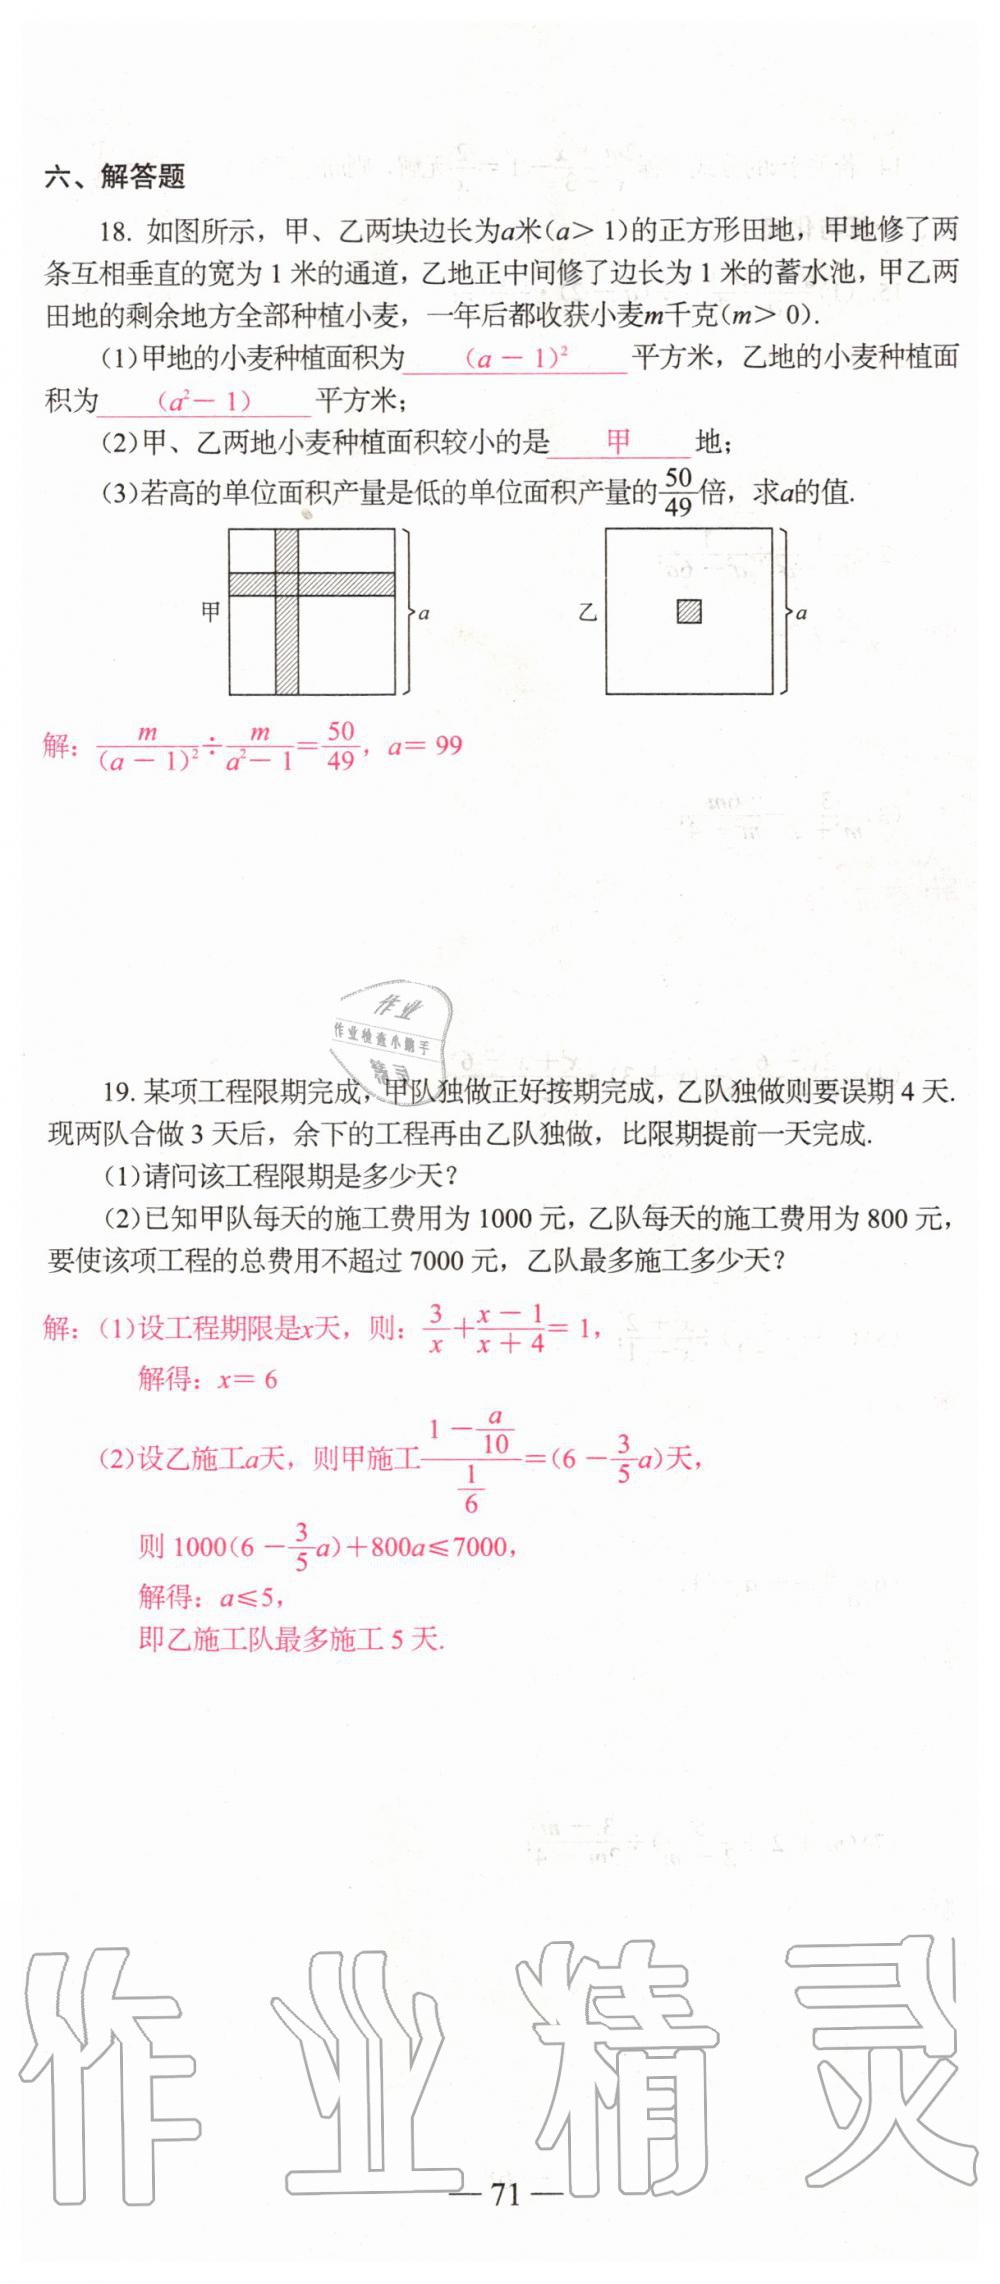 六、解答题
18. 如图所示，甲、乙两块边长为a米(a＞1)的正方形田地，甲地修了两
条互相垂直的宽为 1 米的通道，乙地正中间修了边长为 1 米的蓄水池，甲乙两
田地的剩余地方全部种植小麦，一年后都收获小麦m千克(m＞0).
(1)甲地的小麦种植面积为 (a－1)² 平方米，乙地的小麦种植面
积为 (a²－1) 平方米；
(2)甲、乙两地小麦种植面积较小的是 甲 地；
(3)若高的单位面积产量是低的单位面积产量的50/49倍，求a的值.
甲 a 乙 a
解：m/(a－1)²÷m/(a²－1)＝50/49，a＝99
作业
作业检查小助手
精灵
19. 某项工程限期完成，甲队独做正好按期完成，乙队独做则要误期 4 天.
现两队合做 3 天后，余下的工程再由乙队独做，比限期提前一天完成.
(1)请问该工程限期是多少天？
(2)已知甲队每天的施工费用为 1000 元，乙队每天的施工费用为 800 元，
要使该项工程的总费用不超过 7000 元，乙队最多施工多少天？
解：(1)设工程期限是x天，则：3/x＋(x－1)/(x＋4)＝1，
解得：x＝6
(2)设乙施工a天，则甲施工(1－a/10)/(1/6)＝(6－3/5a)天，
则 1000(6－3/5a)＋800a≤7000，
解得：a≤5，
即乙施工队最多施工 5 天.
作业精灵
— 71 —